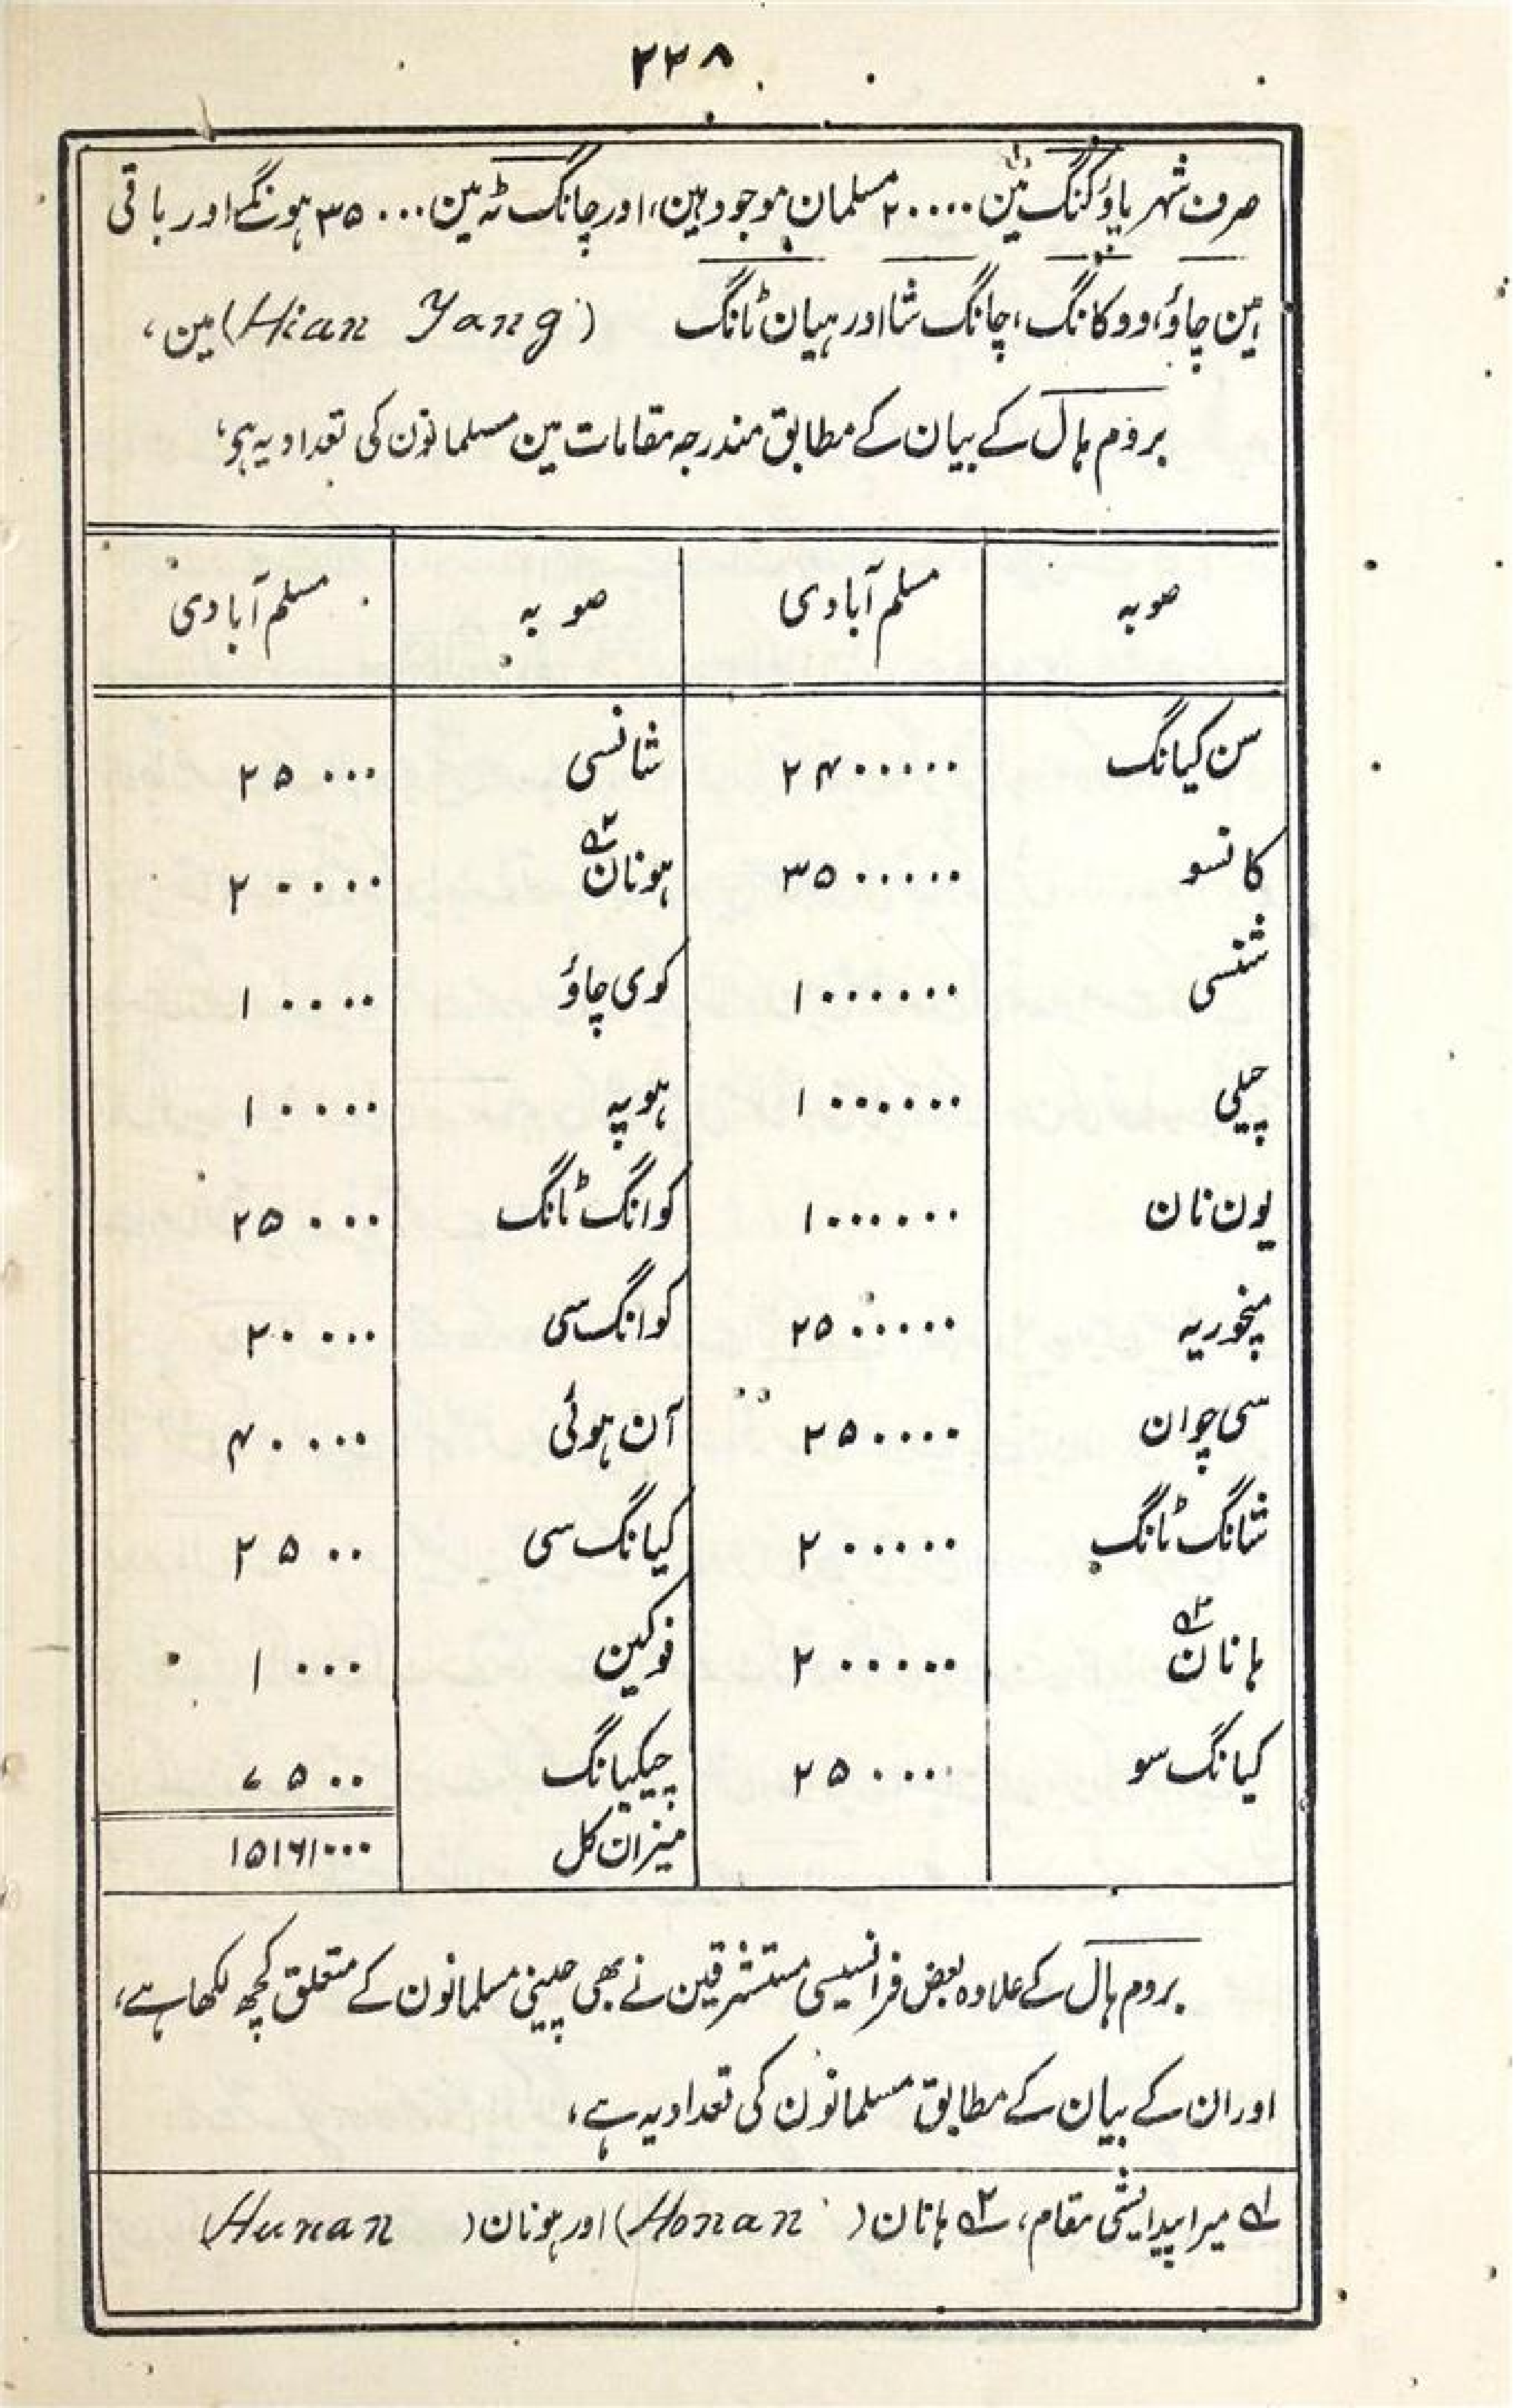 ۲۲۸
صرف شہر یاؤ کنگ مین ۲۰۰۰۰ مسلمان موجود ہین، اور چانگ ٹہ مین ۳۵۰۰۰ ہونگے اور باقی
ین چاؤ، ووکانگ، چانگ شا اور ہیان ٹانگ (Hian Yang) مین،
بروم ہال کے بیان کے مطابق مندرجہ مقامات مین مسلمانون کی تعداد یہ ہو،
صوبہ مسلم آبادی صوبہ مسلم آبادی
سن کیانگ ۲۴۰۰۰۰۰ شانسی ۲۵۰۰۰
کانسو ۳۵۰۰۰۰۰ ہونان ۲؎ ۲۰۰۰۰
شنسی ۱۰۰۰۰۰۰ کوی چاؤ ۱۰۰۰۰
چیلی ۱۰۰۰۰۰۰ ہوپہ ۱۰۰۰۰
یون نان ۱۰۰۰۰۰۰ کوانگ ٹانگ ۲۵۰۰۰
منچوریہ ۲۵۰۰۰۰۰ کوانگ سی ۲۰۰۰۰
سی چوان ۲۵۰۰۰۰ آن ہوئی ۴۰۰۰۰
شانگ ٹانگ ۲۰۰۰۰۰ کیانگ سی ۲۵۰۰
ہانان ۲؎ ۲۰۰۰۰۰ فوکین ۱۰۰۰
کیانگ سو ۲۵۰۰۰۰ چیکیانگ ۷۵۰۰
میزان کل ۱۵۱۶۱۰۰۰
بروم ہال کے علاوہ بعض فرانسیسی مستشرقین نے بھی چینی مسلمانون کے متعلق کچھ لکھا ہے،
اور ان کے بیان کے مطابق مسلمانون کی تعداد یہ ہے،
۱؎ میرا پیدایشی مقام، ۲؎ ہانان (Honan) اور ہونان (Hunan)